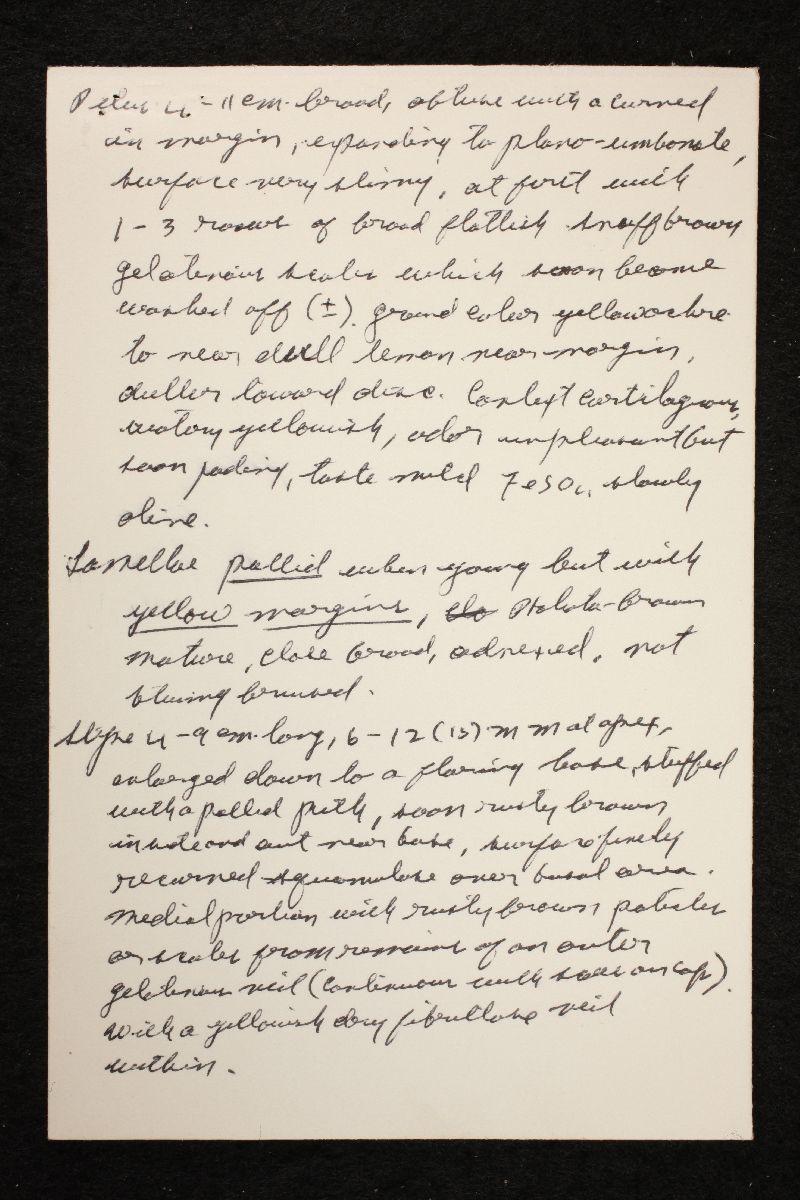 Pileus 4-11 cm. broad, obtuse with a curved
in margin, expanding to plano-umbonate,
surface very slimy, at first with
1-3 rows of broad flattish snuff brown
gelatinous scales which soon become
washed off (±). ground color yellow ochre
to near dull lemon near margin,
duller toward disc. Context cartilaginous,
watery yellowish, odor unpleasant but
soon fading, taste mild FeSO4 slowly
olive.
Lamellae pallid when young but with
yellow margins, brown
mature, close broad, adnexed, not
staining bruised.
Stipe 4-9 cm. long, 6-12 (15) mm at apex,
enlarged down to a flaring base, stuffed
with a pallid pith, soon rusty brown
inside and out near base, surface finely
recurved squamulose over basal area.
medial portion with rusty brown patches
or scales from remains of an outer
gelatinous veil (continuous with scales on cap).
with a yellowish dry fibrillose veil
within.